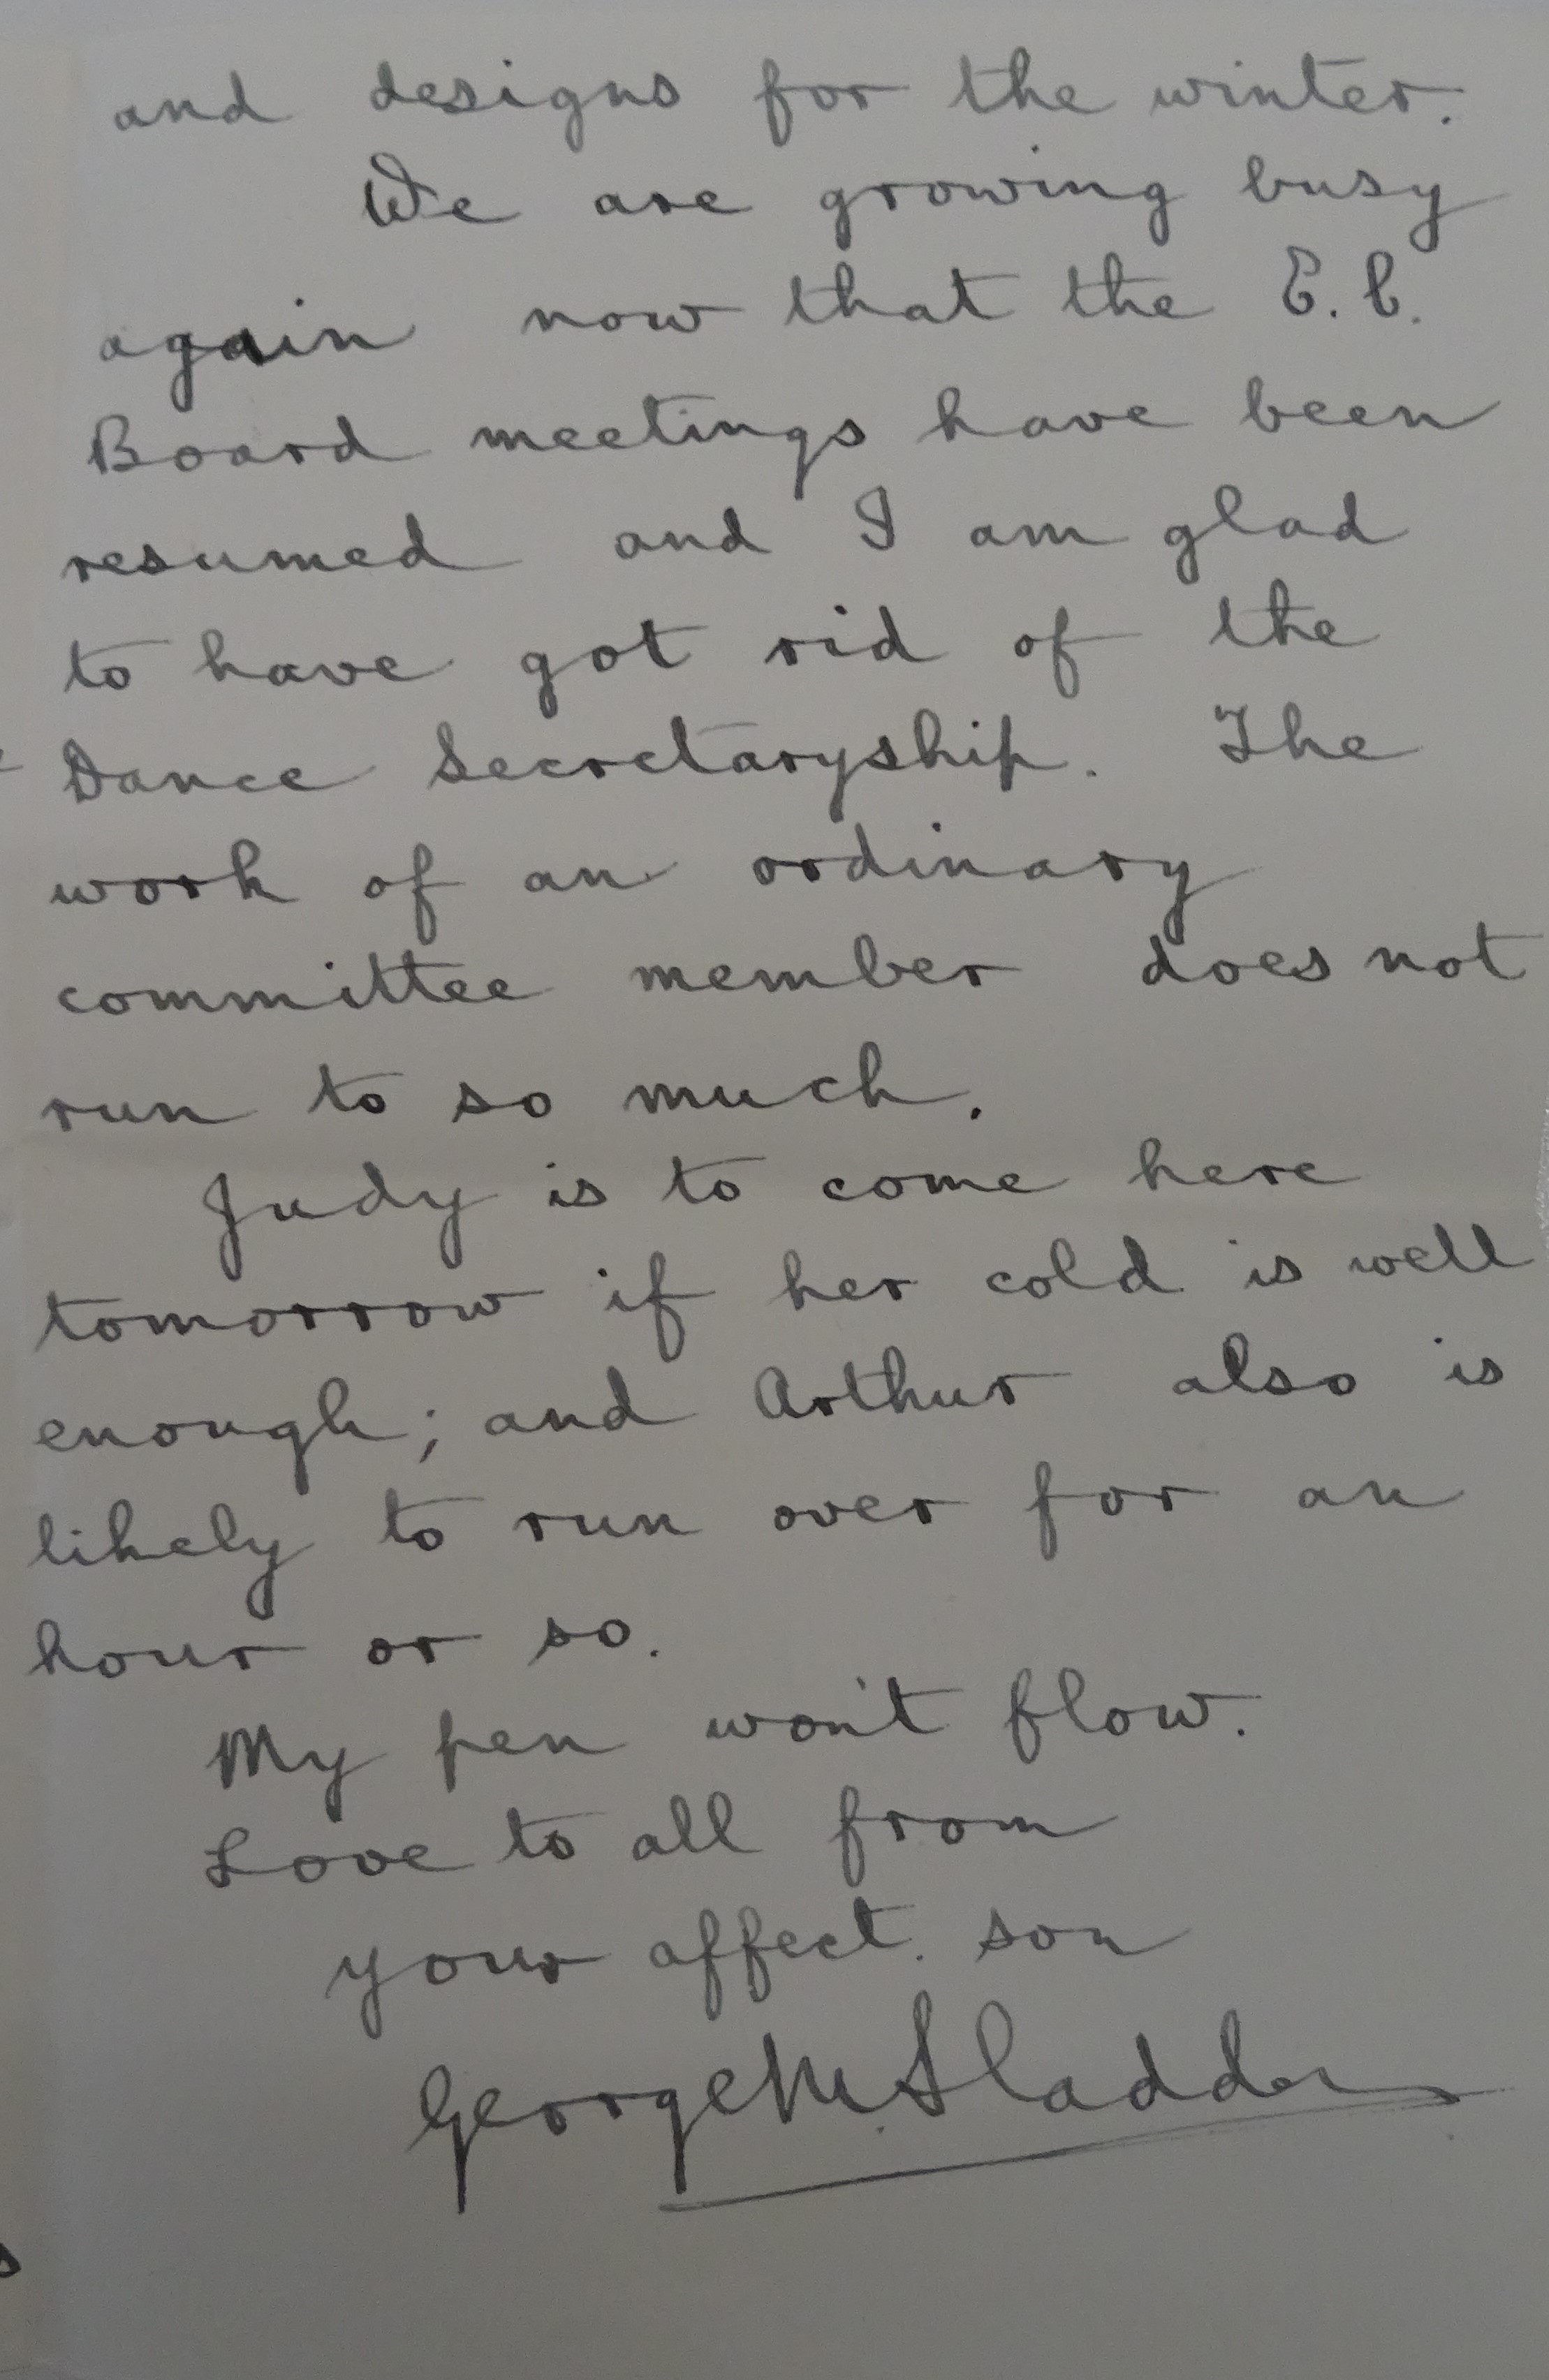 and designs for the winter.
We are growing busy
again now that the E.C.
Board meetings have been
resumed and I am glad
to have got rid of the
Dance Secretaryship. The
work of an ordinary
committee member does not
run to so much.
Judy is to come here
tomorrow if her cold is well
enough; and Arthur also is
likely to run over for an
hour or so.
My pen won't flow.
Love to all from
your affect. son
George M Sladden